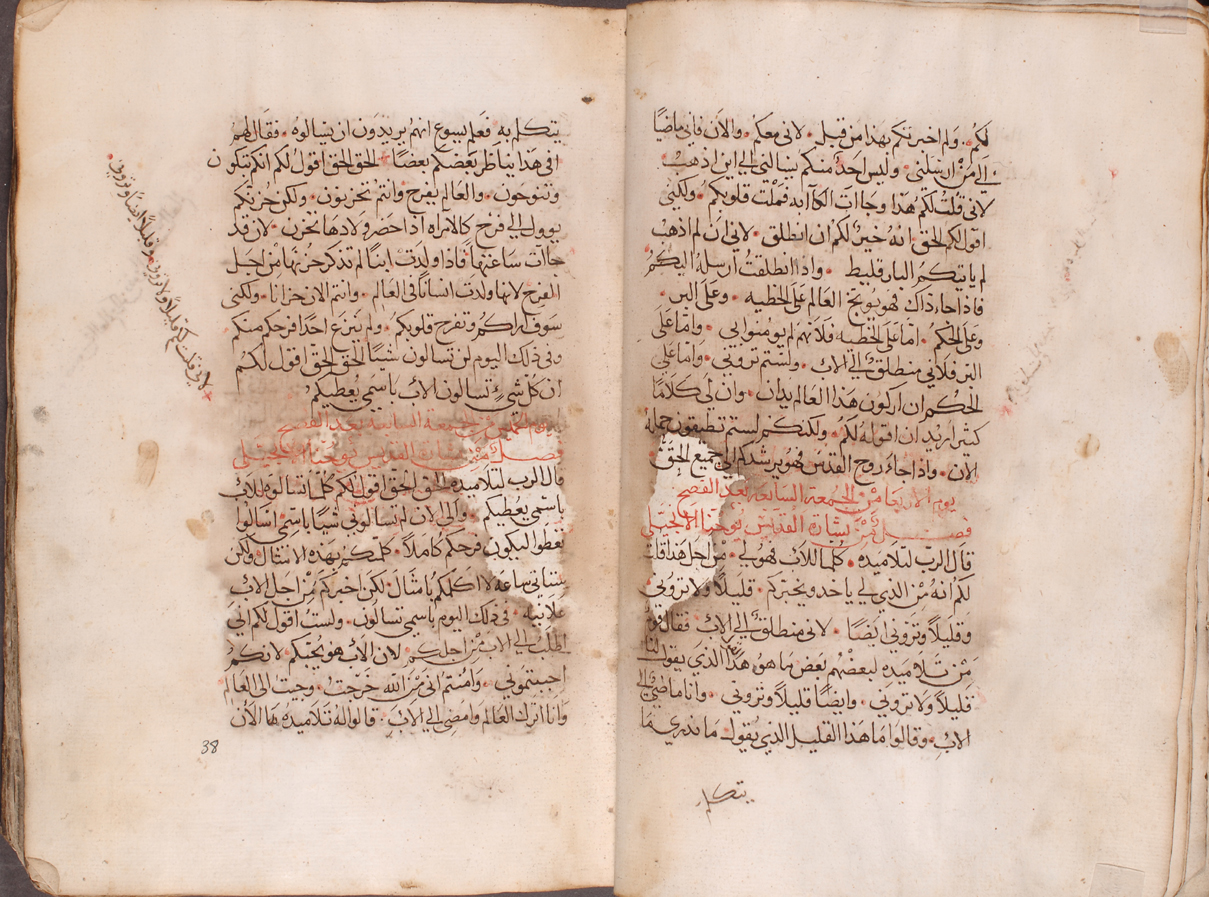 لكم. ولم اخبركم بهذا من قبل. لاني معكم. والان فاني ماضيًا
الي من ارسلني. وليس احد منكم يسالني الي اين اذهب.
لاني قلت لكم هذا وجاات الكاابه فملت قلوبكم. ولكني
اقول لكم الحق انه خير لكم ان انطلق. لاني ان لم اذهب
لم ياتيكم البارقليط. واذا انطلقت ارسله اليكم
فاذا جاء ذاك فهو يوبخ العالم علي الخطيه. وعلي البر.
وعلي الحكم. اما علي الخطيه فلانهم لم يومنوا بي. واما علي
البر فلاني منطلق الي الاب. ولستم تروني. واما علي
الحكم ان اركون هذا العالم يدان. وان لي كلامًا
كثيرًا اريد ان اقوله لكم. ولكنكم لستم تطيقون حمله
الان. واذا جاء روح القدس فهو يرشدكم الي جميع الحق.
يوم الاربعا من الجمعه السابعه بعد الفصح
فصل من بشارة القديس يوحنا الانجيلي
قال الرب لتلاميذه. كلما للاب فهو لي. من اجل هذا قلت
لكم انه من الذي لي ياخد ويخبركم. قليلًا ولا تروني
وقليلًا وتروني ايضًا. لاني منطلق الي الاب. فقال قوم
من تلاميذه لبعضهم بعض ما هو هذا الذي يقول لنا
قليلًا ولا تروني. وايضًا قليلًا وتروني. وانا ماضي الي
الاب. وقالوا ما هذا القليل الذي يقول. ما ندري بما
يتكلم
يتكلم به فعلم يسوع انهم يريدون ان يسالوه. فقال لهم
افي هذا يناظر بعضكم بعضًا. الحق الحق اقول لكم انكم تبكون
وتنوحون. والعالم يفرح وانتم تحزنون. ولكن حزنكم
يوول الي فرح كالامراه اذا حضر ولادها تحزن. لان قد
جاات ساعتها فاذا ولدت ابنًا لم تذكر حزنها من اجل
الفرح لانها ولدت انسانًا في العالم. وانتم الان حزانا. ولكني
سوف اراكم وتفرح قلوبكم. ولم ينزع احدًا فرحكم منكم
وفي ذلك اليوم لن تسالون شيًا الحق الحق اقول لكم
ان كل شيء تسالون الاب باسمي يعطيكم
يوم الخميس من الجمعه السابعه بعد الفصح
فصل من بشارة القديس يوحنا الانجيلي
قال الرب لتلاميذه الحق الحق اقول لكم كلما تسالوه للاب
باسمي يعطيكم. والي الان لم تسالوني شيًا باسمي اسالوا
تعطوا ليكون فرحكم كاملًا. كلمتكم بهذه الامثال ولكن
ستاتي ساعه لا اكلمكم بامثال لكن اخبركم من اجل الاب
علانيه. في ذلك اليوم باسمي تسالون. ولست اقول لكم اني
اطلب الي الاب من اجلكم لان الاب هو يحبكم لانكم
احببتموني. وامنتم اني من الله خرجت. وجيت الي العالم
وانا اترك العالم وامضي الي الاب. قالوا له تلاميذه ها الان
لاني قلت لكم قليلًا ولا تروني. وقليلًا ايضًا وتروني
38